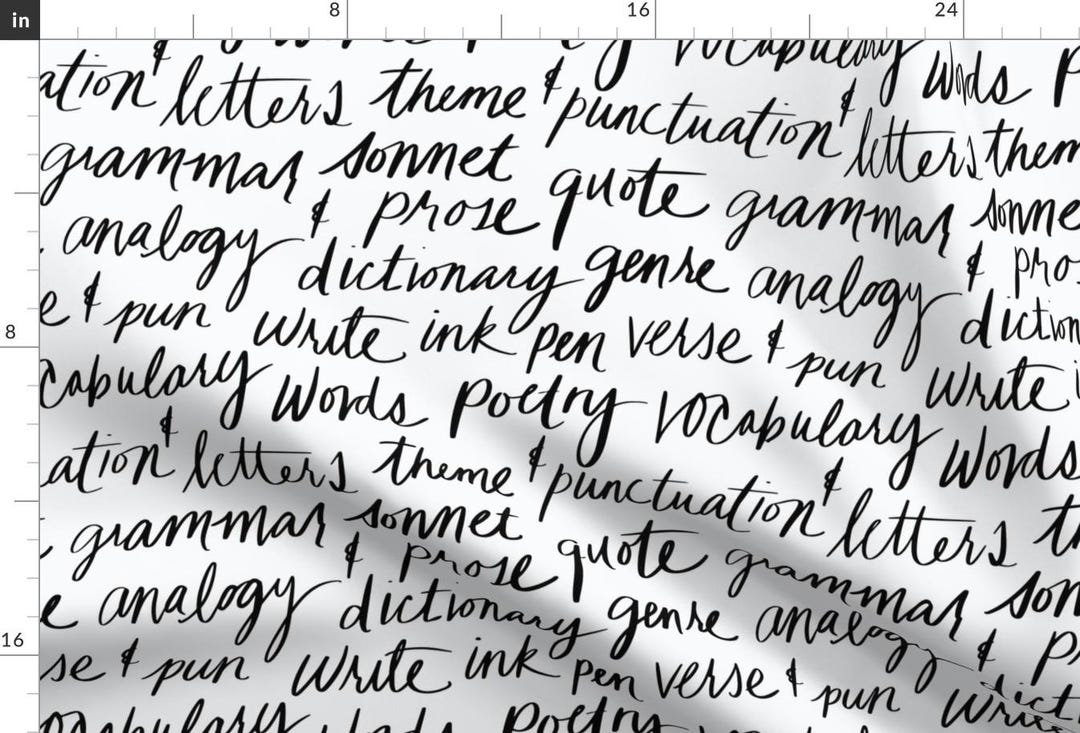 in 8 16 24
vocabulary words
ation & letters theme & punctuation & letters them
grammar sonnet quote grammar sonne
analogy & prose genre analogy & pro
e & pun dictionary verse & pun diction
write ink pen write
8
cabulary words poetry vocabulary words
ation & letters theme & punctuation & letters th
grammar sonnet quote grammar son
e analogy & prose genre analogy & p
dictionary dict
16
se & pun write ink pen verse & pun write
poetry